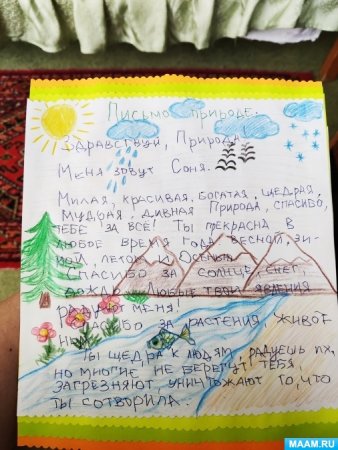 Письмо природе.
Здравствуй, Природа
Меня зовут Соня.
Милая, красивая, богатая, щедрая,
мудрая, дивная Природа, спасибо,
тебе за всё! Ты прекрасна в
любое время года весной, зи-
мой, летом и осенью.
Спасибо за солнце, снег,
дождь. Любые твои явления
радуют меня!
за растения, живот
ных
Ты щедра к людям, радуешь их,
но многие не берегут тебя,
загрязняют уничтожают то, что
ты сотворила.
MAAM.RU